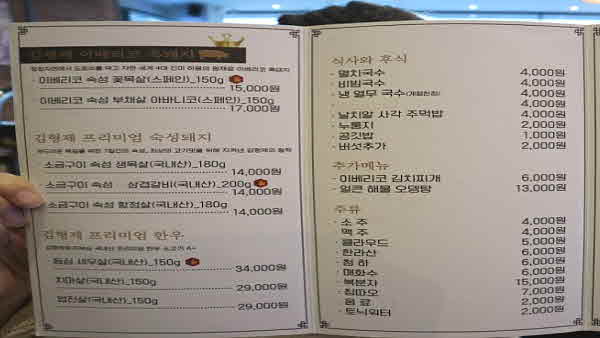 김형제 이베리코 흑돼지
이베리코 숙성 꽃목살(스페인)_150g
15,000원
이베리코 숙성 부채살 아바니코(스페인)_150g
17,000원
김형제 프리미엄 숙성돼지
소금구이 숙성 생목살(국내산)_180g
14,000원
소금구이 숙성 삼겹갈비(국내산)_200g
14,000원
소금구이 숙성 항정살(국내산)_180g
14,000원
김형제 프리미엄 한우
등심 새우살(국내산)_150g
34,000원
치마살(국내산)_150g
29,000원
업진살(국내산)_150g
29,000원
식사와 후식
· 멸치국수 4,000원
· 비빔국수 4,000원
· 냉 열무 국수(계절한정) 4,000원
· 4,000원
· 날치알 사각 주먹밥 4,000원
· 누룽지 2,000원
· 공깃밥 1,000원
· 버섯추가 2,000원
추가메뉴
· 이베리코 김치찌개 6,000원
· 얼큰 해물 오뎅탕 13,000원
주류
· 소 주 4,000원
· 맥 주 4,000원
· 클라우드 5,000원
· 한라산 5,000원
· 청 하 5,000원
· 매화수 6,000원
· 복분자 15,000원
· 칭따오 7,000원
· 음 료 2,000원
· 토닉워터 2,000원